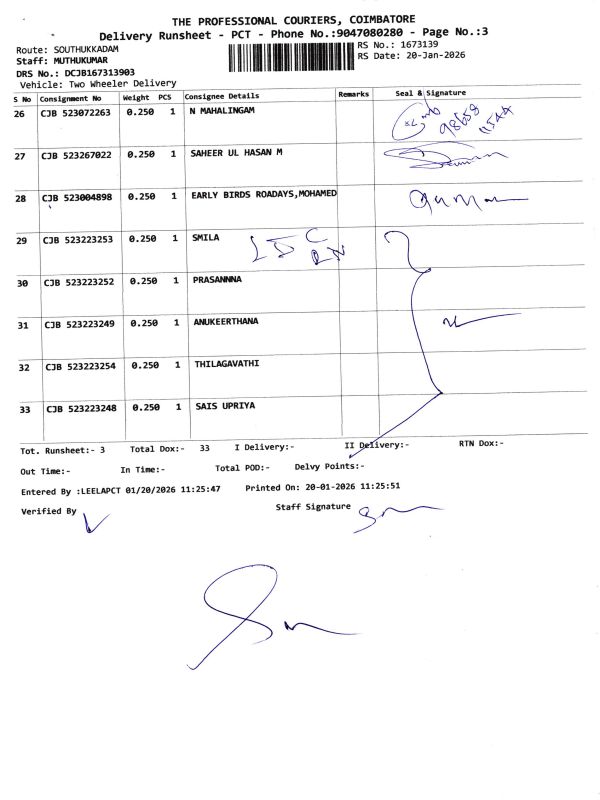 THE PROFESSIONAL COURIERS, COIMBATORE
Delivery Runsheet - PCT - Phone No.:9047080280 - Page No.:3
Route: SOUTHUKKADAM
RS No.: 1673139
Staff: MUTHUKUMAR
RS Date: 20-Jan-2026
DRS No.: DCJB167313903
Vehicle: Two Wheeler Delivery
S No Consignment No Weight PCS Consignee Details Remarks Seal & Signature
26 CJB 523072263 0.250 1 N MAHALINGAM
98658
27 CJB 523267022 0.250 1 SAHEER UL HASAN M
28 CJB 523004898 0.250 1 EARLY BIRDS ROADAYS,MOHAMED
29 CJB 523223253 0.250 1 SMILA
30 CJB 523223252 0.250 1 PRASANNNA
31 CJB 523223249 0.250 1 ANUKEERTHANA
32 CJB 523223254 0.250 1 THILAGAVATHI
33 CJB 523223248 0.250 1 SAIS UPRIYA
Tot. Runsheet:- 3 Total Dox:- 33 I Delivery:- II Delivery:- RTN Dox:-
Out Time:- In Time:- Total POD:- Delvy Points:-
Entered By :LEELAPCT 01/20/2026 11:25:47 Printed On: 20-01-2026 11:25:51
Verified By Staff Signature